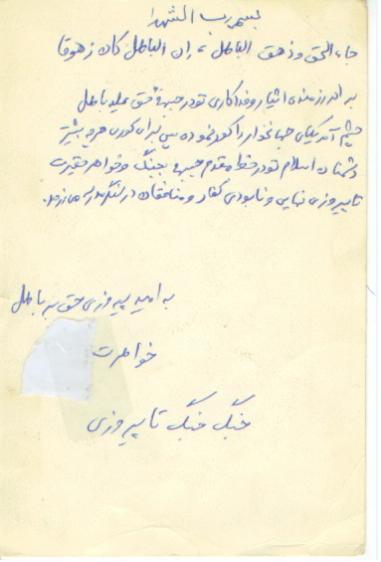 بسم رب الشهدا
جاء الحق و ذهق الباطل ، ان الباطل کان زهوقا
برادر رزمنده ایثار و فداکاری تو در جبهه حق علیه باطل
چشم آمریکای جهانخوار را کور نموده پس برای کوری هر چه بیشتر
دشمنان اسلام تو در خط مقدم جبهه بجنگ و خواهر حقیرت
تا پیروزی نهایی و نابودی کفار و منافقان در سنگر مدرسه می رزمد.
به امید پیروزی حق بر باطل
خواهرت
جنگ جنگ تا پیروزی